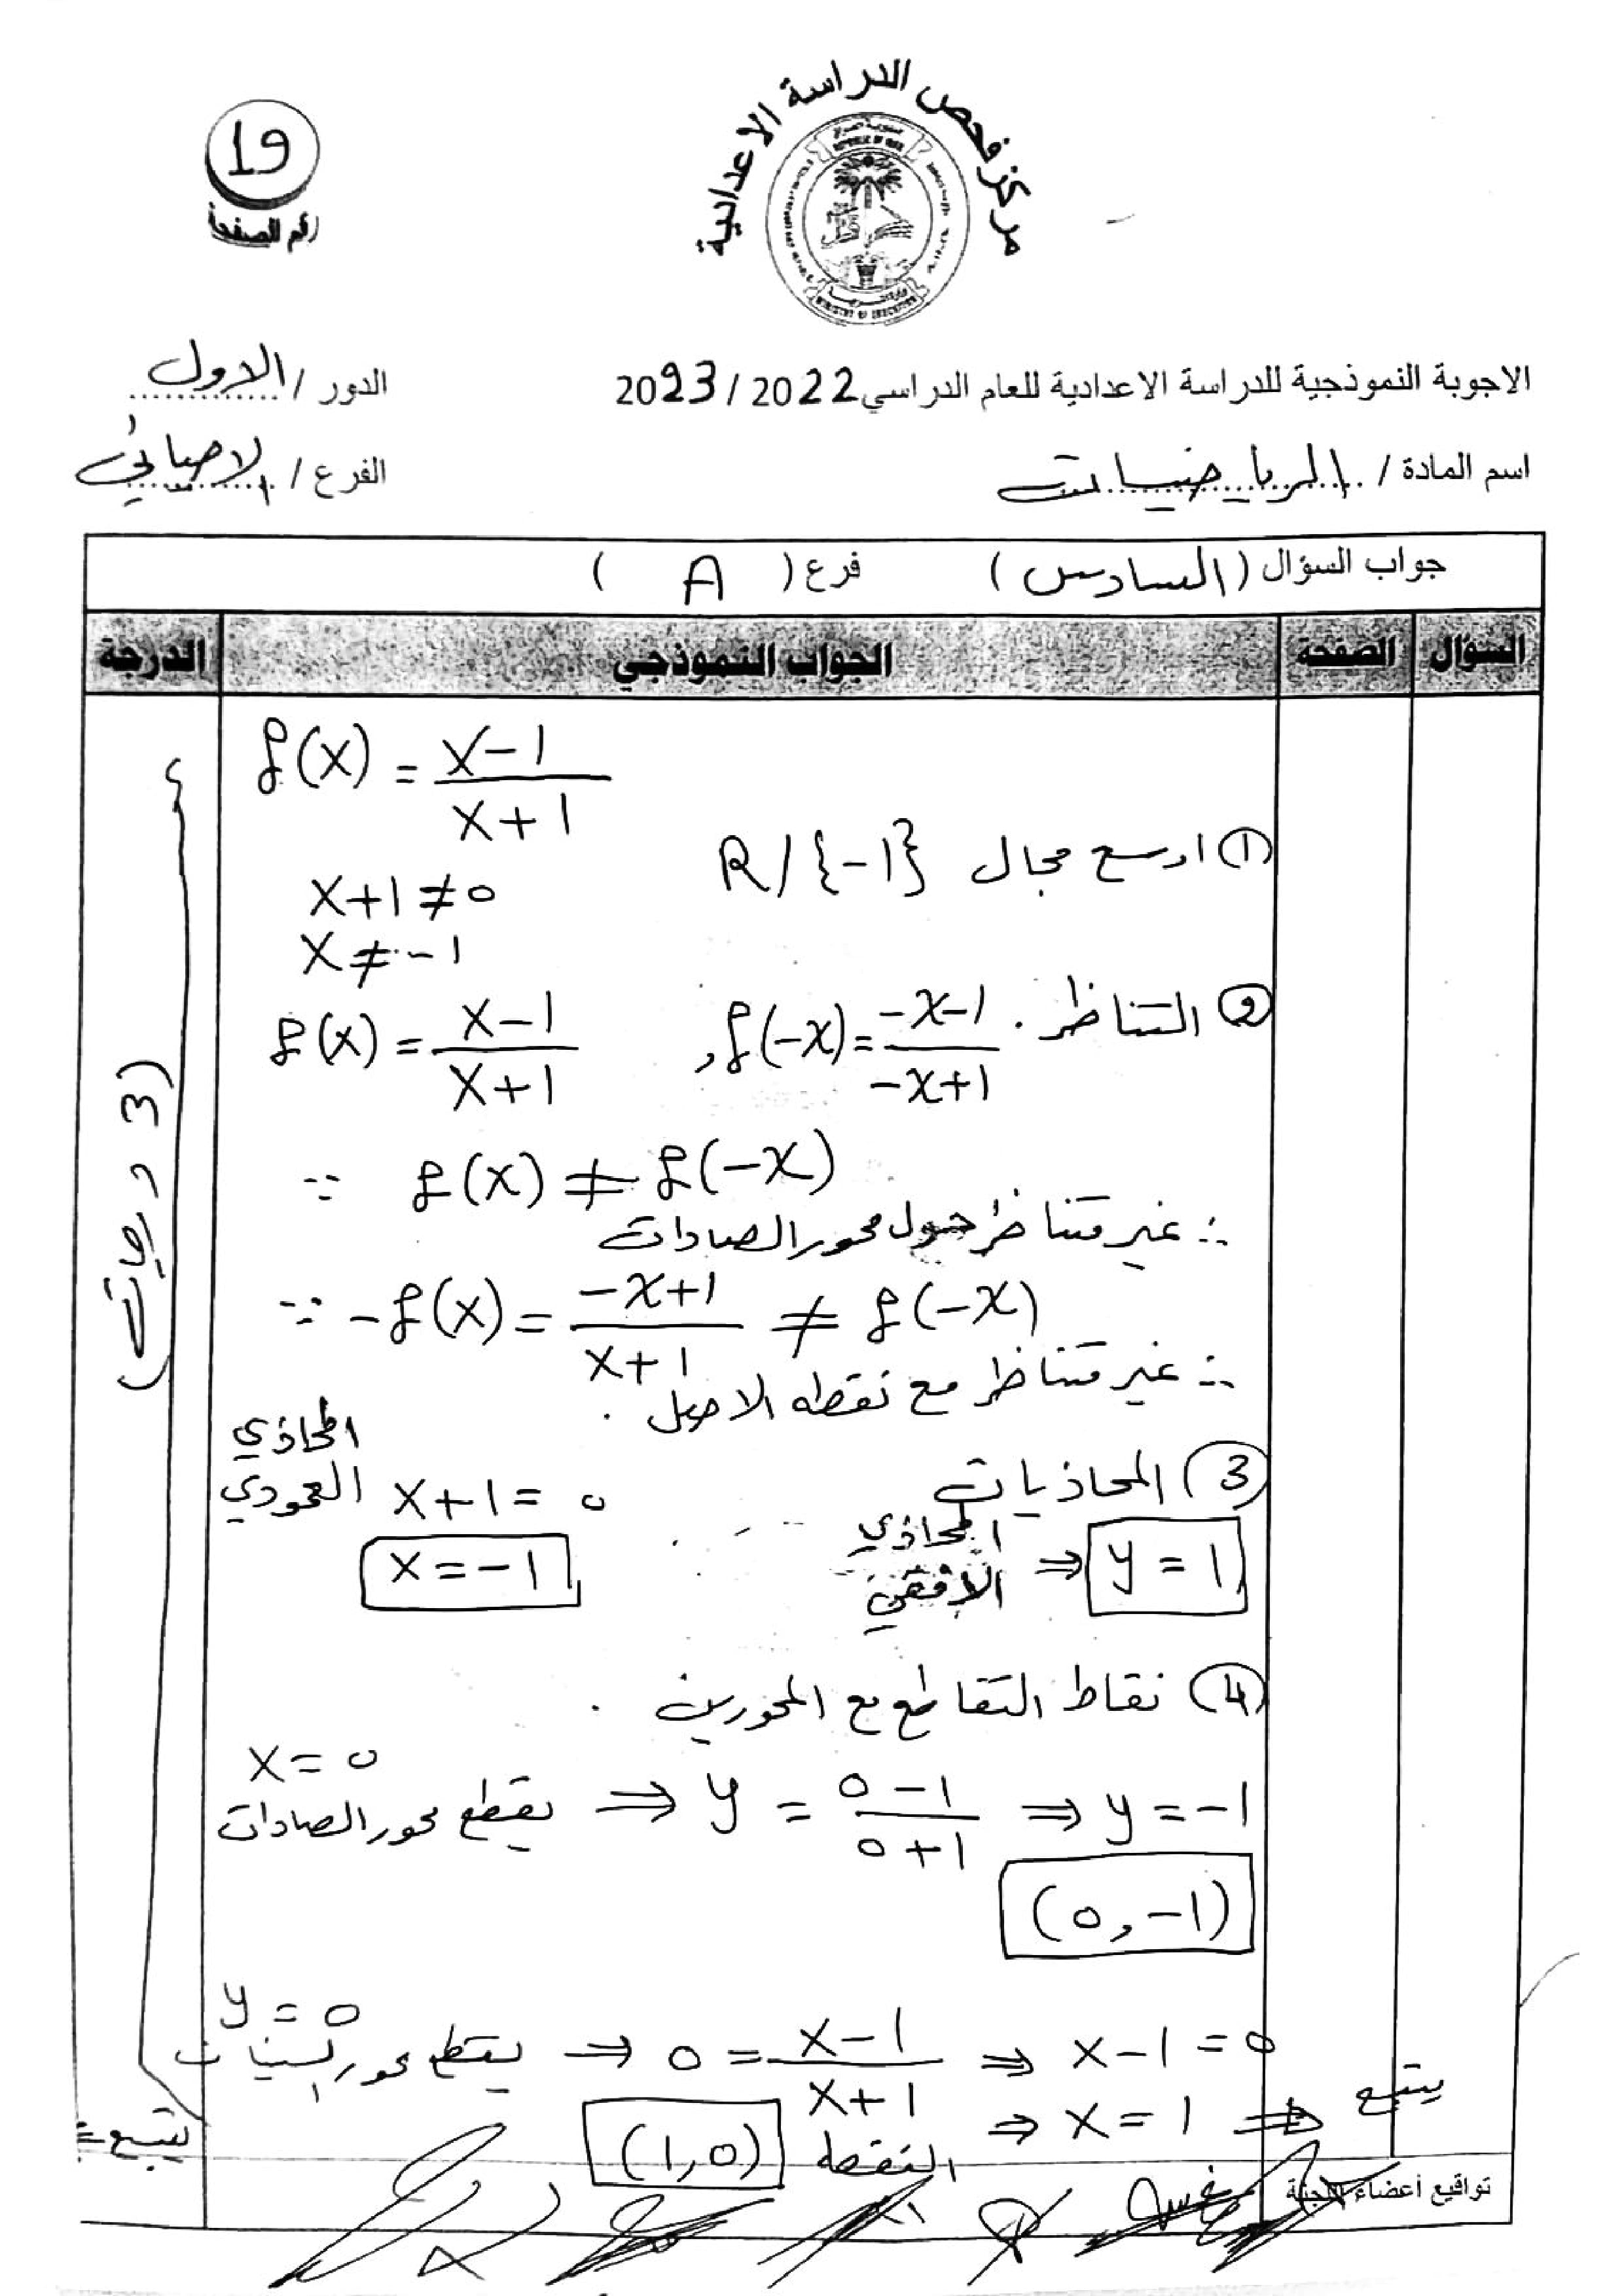 مركز فحص الدراسة الاعدادية
19
رقم الصفحة
الاجوبة النموذجية للدراسة الاعدادية للعام الدراسي 2022 / 2023
الدور / الاول
اسم المادة / الرياضيات
الفرع / الاحيائي
جواب السؤال ( السادس ) فرع ( A )
السؤال الصفحة الجواب النموذجي الدرجة
f(x) = \frac{x-1}{x+1}
① اوسع مجال R/{-1}
x+1≠0
x≠-1
② التناظر . f(x) = \frac{x-1}{x+1} , f(-x) = \frac{-x-1}{-x+1}
∵ f(x) ≠ f(-x)
∴ غير متناظر حول محور الصادات
∵ -f(x) = \frac{-x+1}{x+1} ≠ f(-x)
∴ غير متناظر مع نقطه الاصل .
(3 درجات)
③ المحاذيات
المحاذي العمودي x+1=0
x=-1
المحاذي الافقي ⇒ y=1
④ نقاط التقاطع مع المحورين .
x=0
يقطع محور الصادات ⇒ y = \frac{0-1}{0+1} ⇒ y=-1
(0,-1)
y=0
يقطع محور السينات ⇒ 0 = \frac{x-1}{x+1} ⇒ x-1=0
⇒ x=1 ⇒ يتبع
النقطه (1,0)
يتبع =
تواقيع أعضاء اللجنة